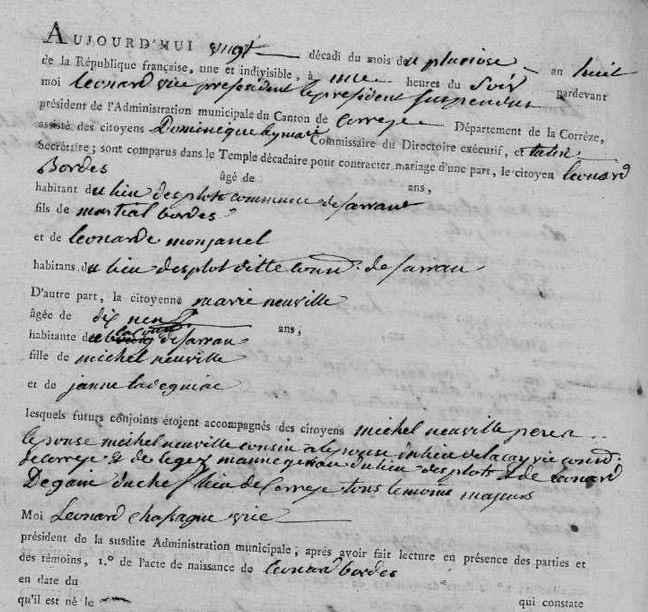 AUJOURD'HUI vingt décadi du mois de pluviose an huit
de la République française, une et indivisible, à une heures du Soir pardevant
moi Leonard vice president le president suspendus
président de l'Administration municipale du Canton de Correze Département de la Corrèze,
assisté des citoyens Dominique Eymarie Commissaire du Directoire exécutif, et
Secrétaire; sont comparus dans le Temple décadaire pour contracter mariage d'une part, le citoyen Leonard
Bordes âgé de ans,
habitant du lieu des plots commune de sarran
fils de martial bordes
et de leonarde monjanel
habitans du lieu des plot ditte comn.e de sarran
D'autre part, la citoyenne marie neuville
âgée de dix neuf ans;
habitante de sarran
fille de michel neuville
et de janne ladegniac
lesquels futurs conjoints étoient accompagnés des citoyens michel neuville pere a
lepouse michel neuville cousin a lepouse du lieu de
de Correze & de leger du lieu des plots & de Leonard
Degain du chef lieu de Correze tous temoins majeurs
Moi Leonard chassagne vice
président de la susdite Administration municipale, après avoir fait lecture en présence des parties et
des témoins, 1.º de l'acte de naissance de leonard bordes
en date du
qu'il est né le qui constate